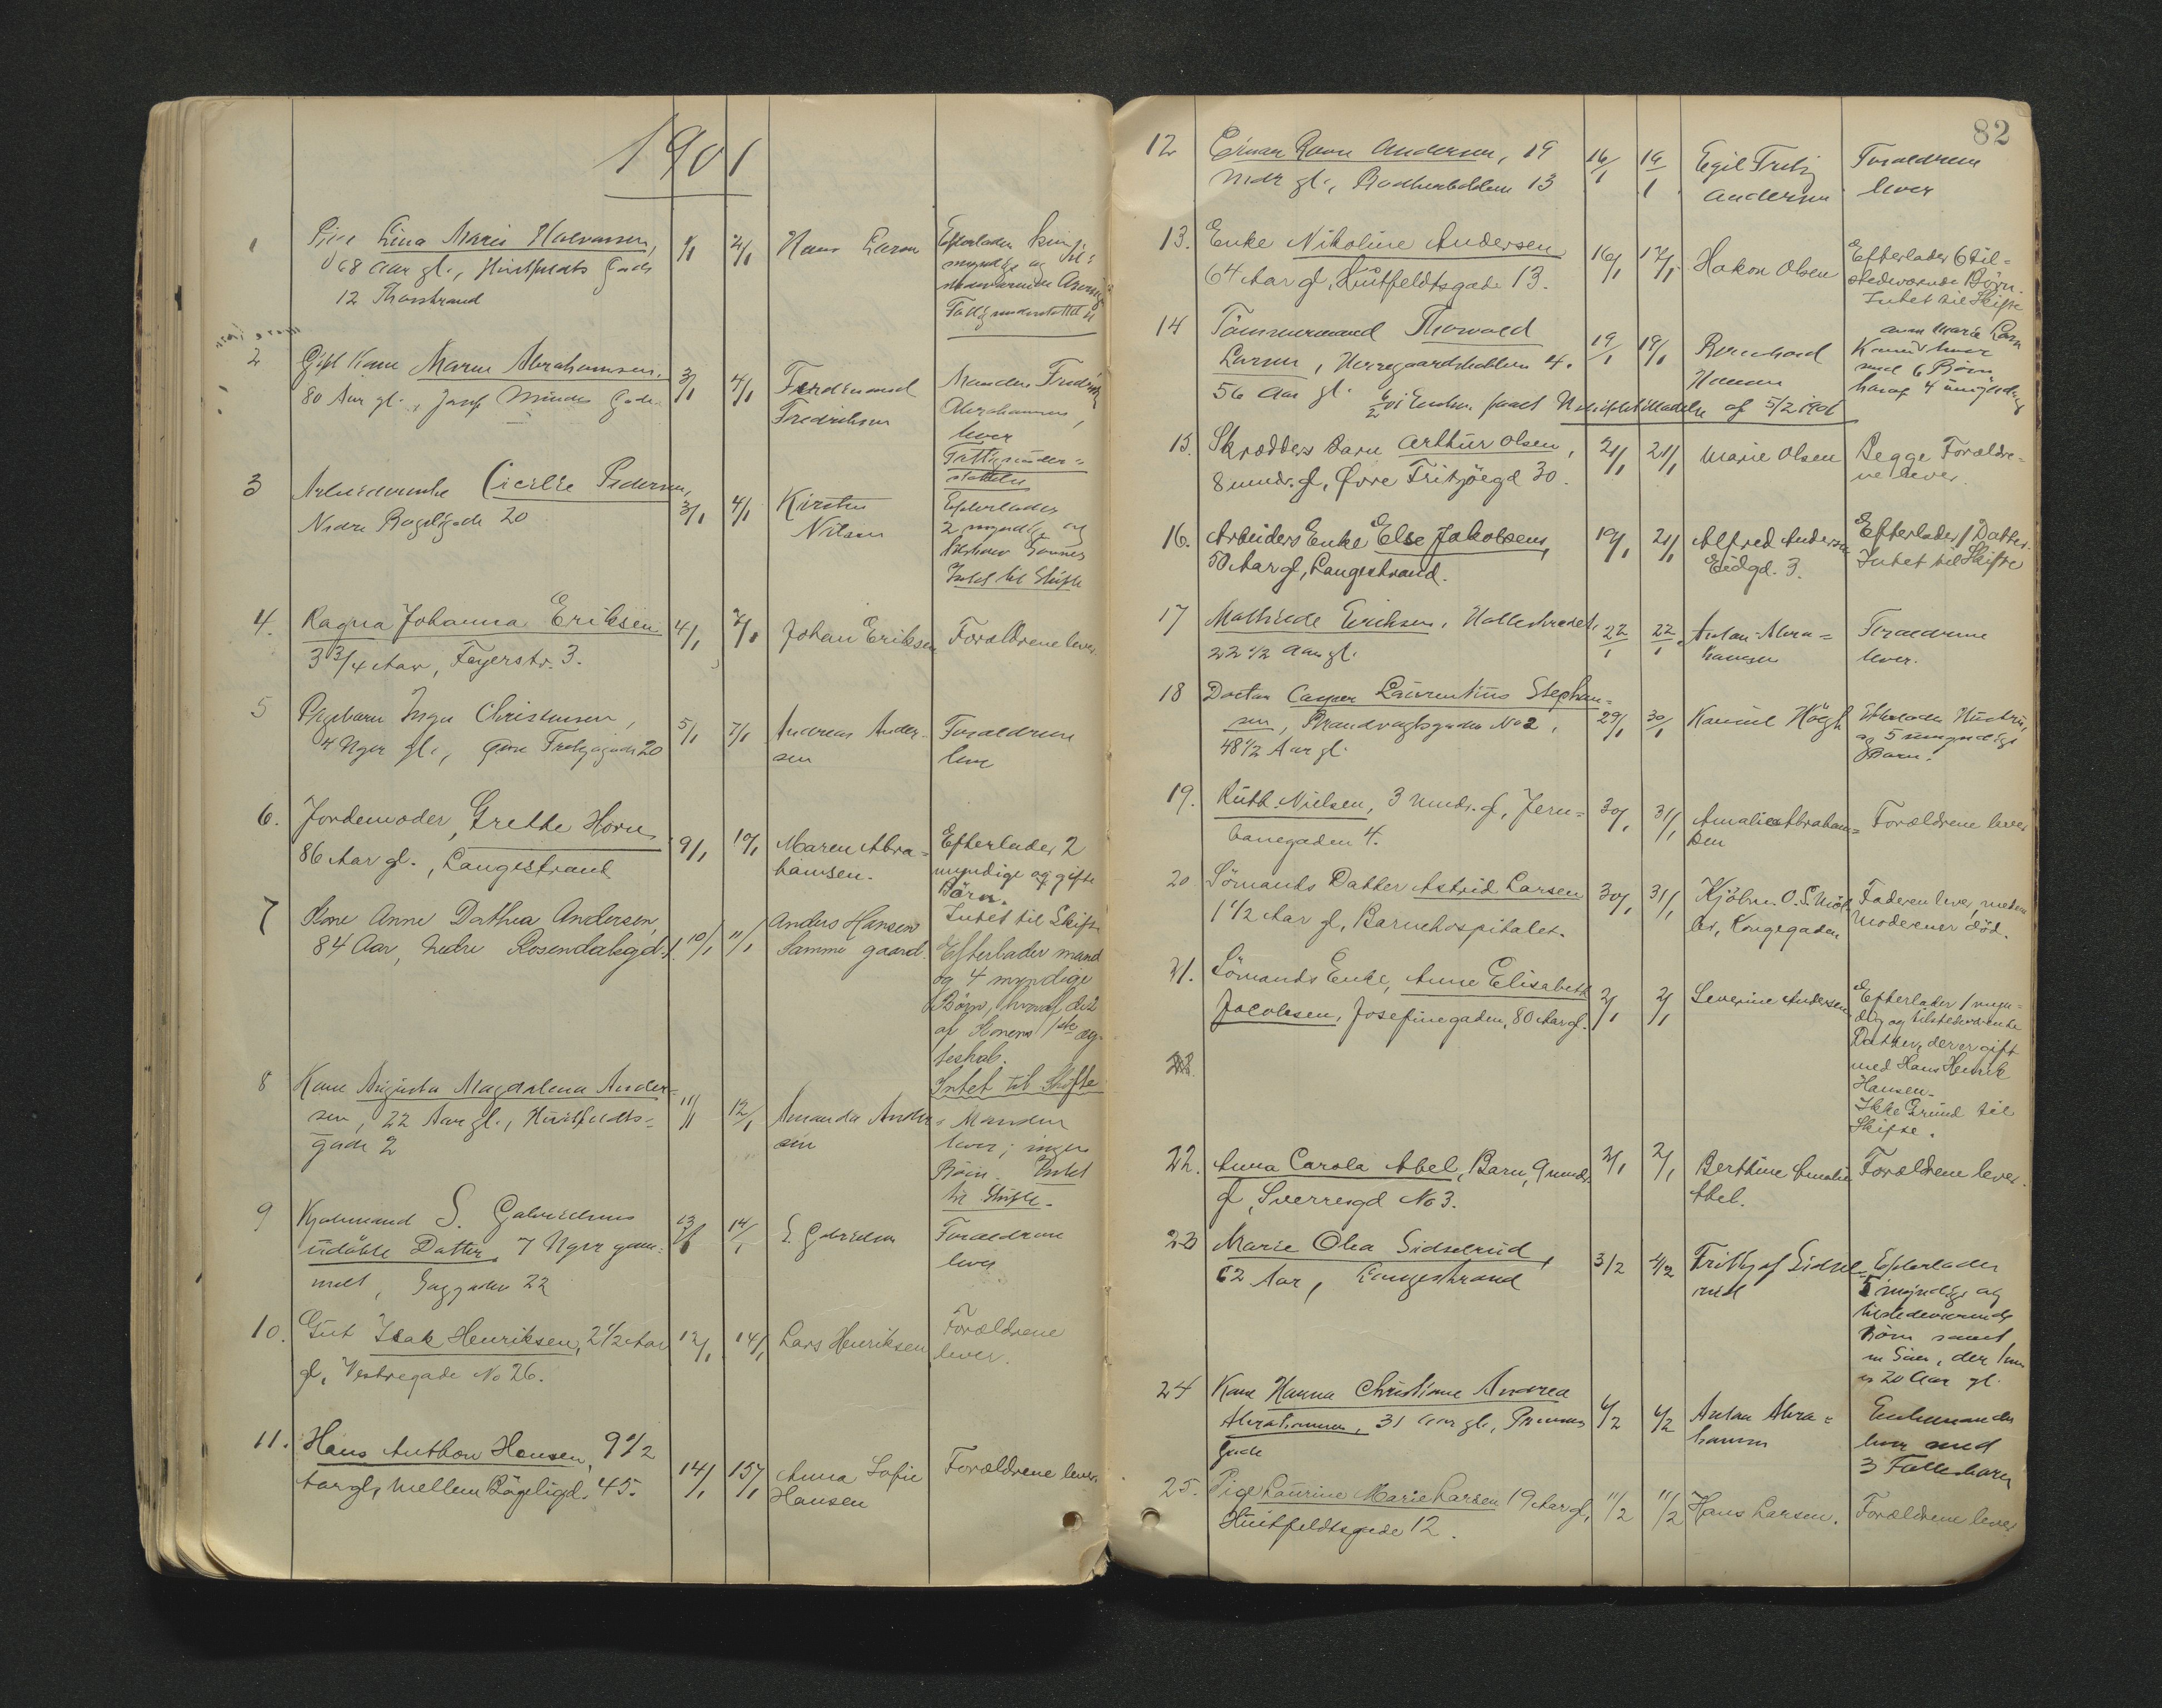 1901
1
Lina Marie Halvorsen,
68 Aar gl., Huitfeldts Gade
12
1/1
2/1
Hans Larsen
Efterlader kun
myndige og til-
stedeværende
2
Gift Kone Maren Abrahamsen.
80 Aar gl., Gade
3/1
4/1
Ferdinand
Fredriksen
Manden Fredrik
Abrahamsen,
lever
Fattigunder-
støttelse
3
Arbeiderenke Cicilie Pedersen,
Nedre Bøgeligade 20
3/1
4/1
Kirsten
Nilsen
Efterlader
2 myndige og
Sønner
Intet til Skifte
4.
Ragna Johanna Eriksen
3 3/4 Aar, Fayerstr. 3.
4/1
7/1
Johan Eriksen
Forældrene lever
5
Pigebarn Inga Christensen,
4 Uger gl., Øvre Fritzøegade 20
5/1
7/1
Andreas Ander-
sen
Forældrene
lever
6.
Jordemoder, Grethe Horn
86 Aar gl., Langestrand
9/1
10/1
Maren Abra-
hamsen.
Efterlader 2
myndige og gifte
Börn.
Intet til Skifte
7
Kone Anne Dorthea Andersen,
84 Aar, Nedre Rosendalsgd.
10/1
11/1
Anders Hansen
Samme gaard.
Efterlader mand
og 4 myndige
Börn, hvoraf de 2
af Konens 1ste æg-
teskab.
Intet til Skifte
8
Kone Augusta Magdalena Ander-
sen, 22 Aar gl., Huitfeldts-
gade 2
11/1
12/1
Amanda Ander-
sen
Manden
lever; ingen
Börn. Intet
til Skifte.
9
S. Gabrielsens
udöbte Datter 7 Uger gam-
melt, 22
13/1
14/1
S. Gabrielsen
Forældrene
lever
10.
Gut Isak Henriksen, 2 1/2 Aar
gl, Vestregade No 26.
12/1
14/1
Lars Henriksen
Forældrene
lever.
11.
Hans Anthon Hansen, 9 1/2
Aar gl, Mellem Bögeligd. 45.
14/1
15/1
Anna Sofie
Hansen
Forældrene lever.
82
12
Einar Ravn Andersen, 19
Mdr gl., 13
16/1
19/1
Egil Fritz
Andersen
Forældrene
lever
13.
Enke Nikoline Andersen
64 Aar gl, Huitfeldtsgade 13.
16/1
17/1
Hakon Olsen
Efterlader 6 til-
stedeværende Börn.
Intet til Skifte
14
Tömmermand Thorvald
Larsen, Herregaardsbakken 4.
56 Aar gl.
19/1
19/1
Bernhard
Hansen
Marie Larsen
lever
med 6 Börn
hvoraf 4 umyndige
6/2 01 Enken faaet Uskiftetilladelse af 5/2 1901
15.
Skrædders Barn Arthur Olsen,
8 mndr. gl, Øvre Fritzöegd 30.
21/1
21/1
Marie Olsen
Begge Forældre-
ne lever
16.
Arbeiders Enke Else Jakobsen,
50 Aar gl, Langestrand.
19/1
21/1
Alfred Andersen
Eidgd. 3.
Efterlader 1 Datter.
Intet til Skifte
17
Mathilde Erichsen,
22 1/2 Aar gl.
22/1
22/1
Anton Abra-
hamsen
Forældrene
lever.
18
Doctor Casper Laurentius Stephan-
sen, Brandvagtsgaden No 2,
48 1/2 Aar gl.
29/1
30/1
Kamil Högh
Efterlader Hustru,
og 5 umyndige
Barn.
19.
Ruth Nielsen, 3 Mndr. gl, Jern-
banegaden 4.
30/1
31/1
Amalie Abraham-
sen
Forældrene lever
20
Sömands Datter Astrid Larsen
1 1/2 Aar gl, Barnehospitalet.
30/1
31/1
Kjöbm. O. S. Möl-
ler, Kongegaden
Faderen lever, medens
Moderen er död.
21.
Sömands Enke, Anne Elisabeth
Jacobsen, Josefinegaden, 80 Aar gl.
2/1
2/1
Severine Andersen
Efterlader 1 myn-
dig og tilstedeværende
Datter, der er gift
med Hans Henrik
Hansen.
Ikke Grund til
Skifte.
22.
Anna Carola Abel, Barn, 9 mndr.
gl, Sverresgd No 3.
2/1
2/1
Berthine Amalie
Abel.
Forældrene lever.
23
Marie Olea Sidselrud,
62 Aar, Langestrand
3/2
4/2
Frithjof Sidsel-
rud
Efterlader
5 myndige og
tilstedeværende
Börn samt
en Sön, der
er 20 Aar gl.
24
Kone Hanna Christiane Andrea
Abrahamsen, 31 Aar gl.,
Gade
4/2
4/2
Anton Abra-
hamsen
Enkemanden
lever med
3 Fællesbarn
25.
Pige Laurine Marie Larsen 19 Aar gl,
Huitfeldtsgade 12.
11/2
11/2
Hans Larsen.
Forældrene lever